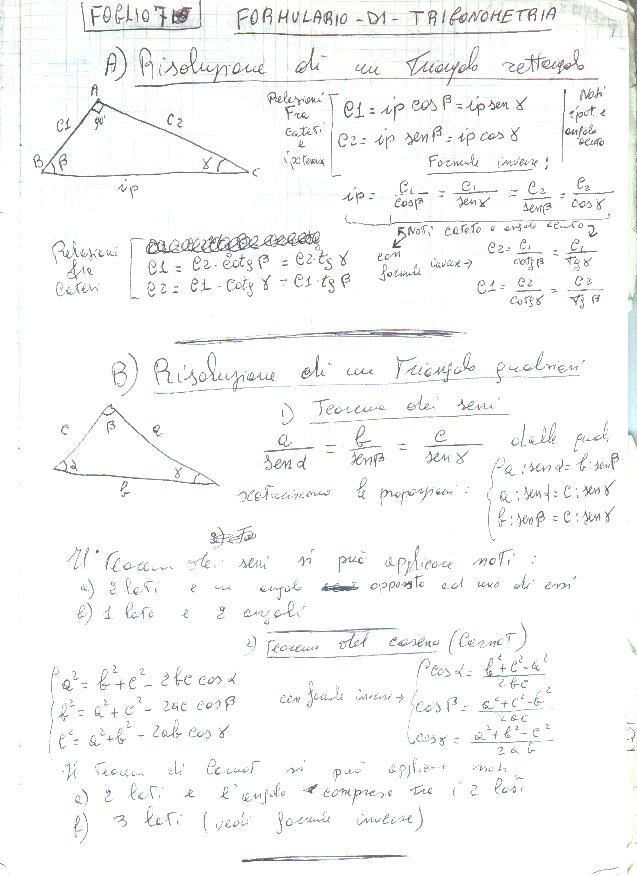 FOGLIO 7
FORMULARIO - DI - TRIGONOMETRIA
A) Risoluzione di un Triangolo rettangolo
A
C1
90°
C2
B
β
γ
C
ip
Relazioni
Fra
Cateti
e
ipotenusa
C1 = ip cos β = ip sen γ
C2 = ip sen β = ip cos γ
Noti
ipot. e
angolo
acuto
Formule inverse:
ip = C1/cosβ = C1/senγ = C2/senβ = C2/cosγ
Noti cateto e angolo acuto
Relazioni
fra
Cateti
C1 = C2 · cotg β = C2 · tg γ
C2 = C1 · cotg γ = C1 · tg β
con
formule inverse →
C2 = C1/cotgβ = C1/tgγ
C1 = C2/cotgγ = C2/tgβ
B) Risoluzione di un Triangolo qualsiasi
c
β
a
α
γ
b
1) Teorema dei seni
a/sen α = b/sen β = c/sen γ
dalle quali
scaturiscono le proporzioni:
a : senα = b : senβ
a : senα = c : senγ
b : senβ = c : senγ
Il Teorema dei seni si può applicare noti :
a) 2 lati e un angolo opposto ad uno di essi
b) 1 lato e 2 angoli
2) Teorema del coseno (Carnot)
a² = b² + c² - 2bc cos α
b² = a² + c² - 2ac cos β
c² = a² + b² - 2ab cos γ
con formule inverse →
cos α = b² + c² - a²/2bc
cos β = a² + c² - b²/2ac
cos γ = a² + b² - c²/2ab
Il Teorema di Carnot si può applicare noti
a) 2 lati e l'angolo compreso tra i 2 lati
b) 3 lati (vedi formule inverse)